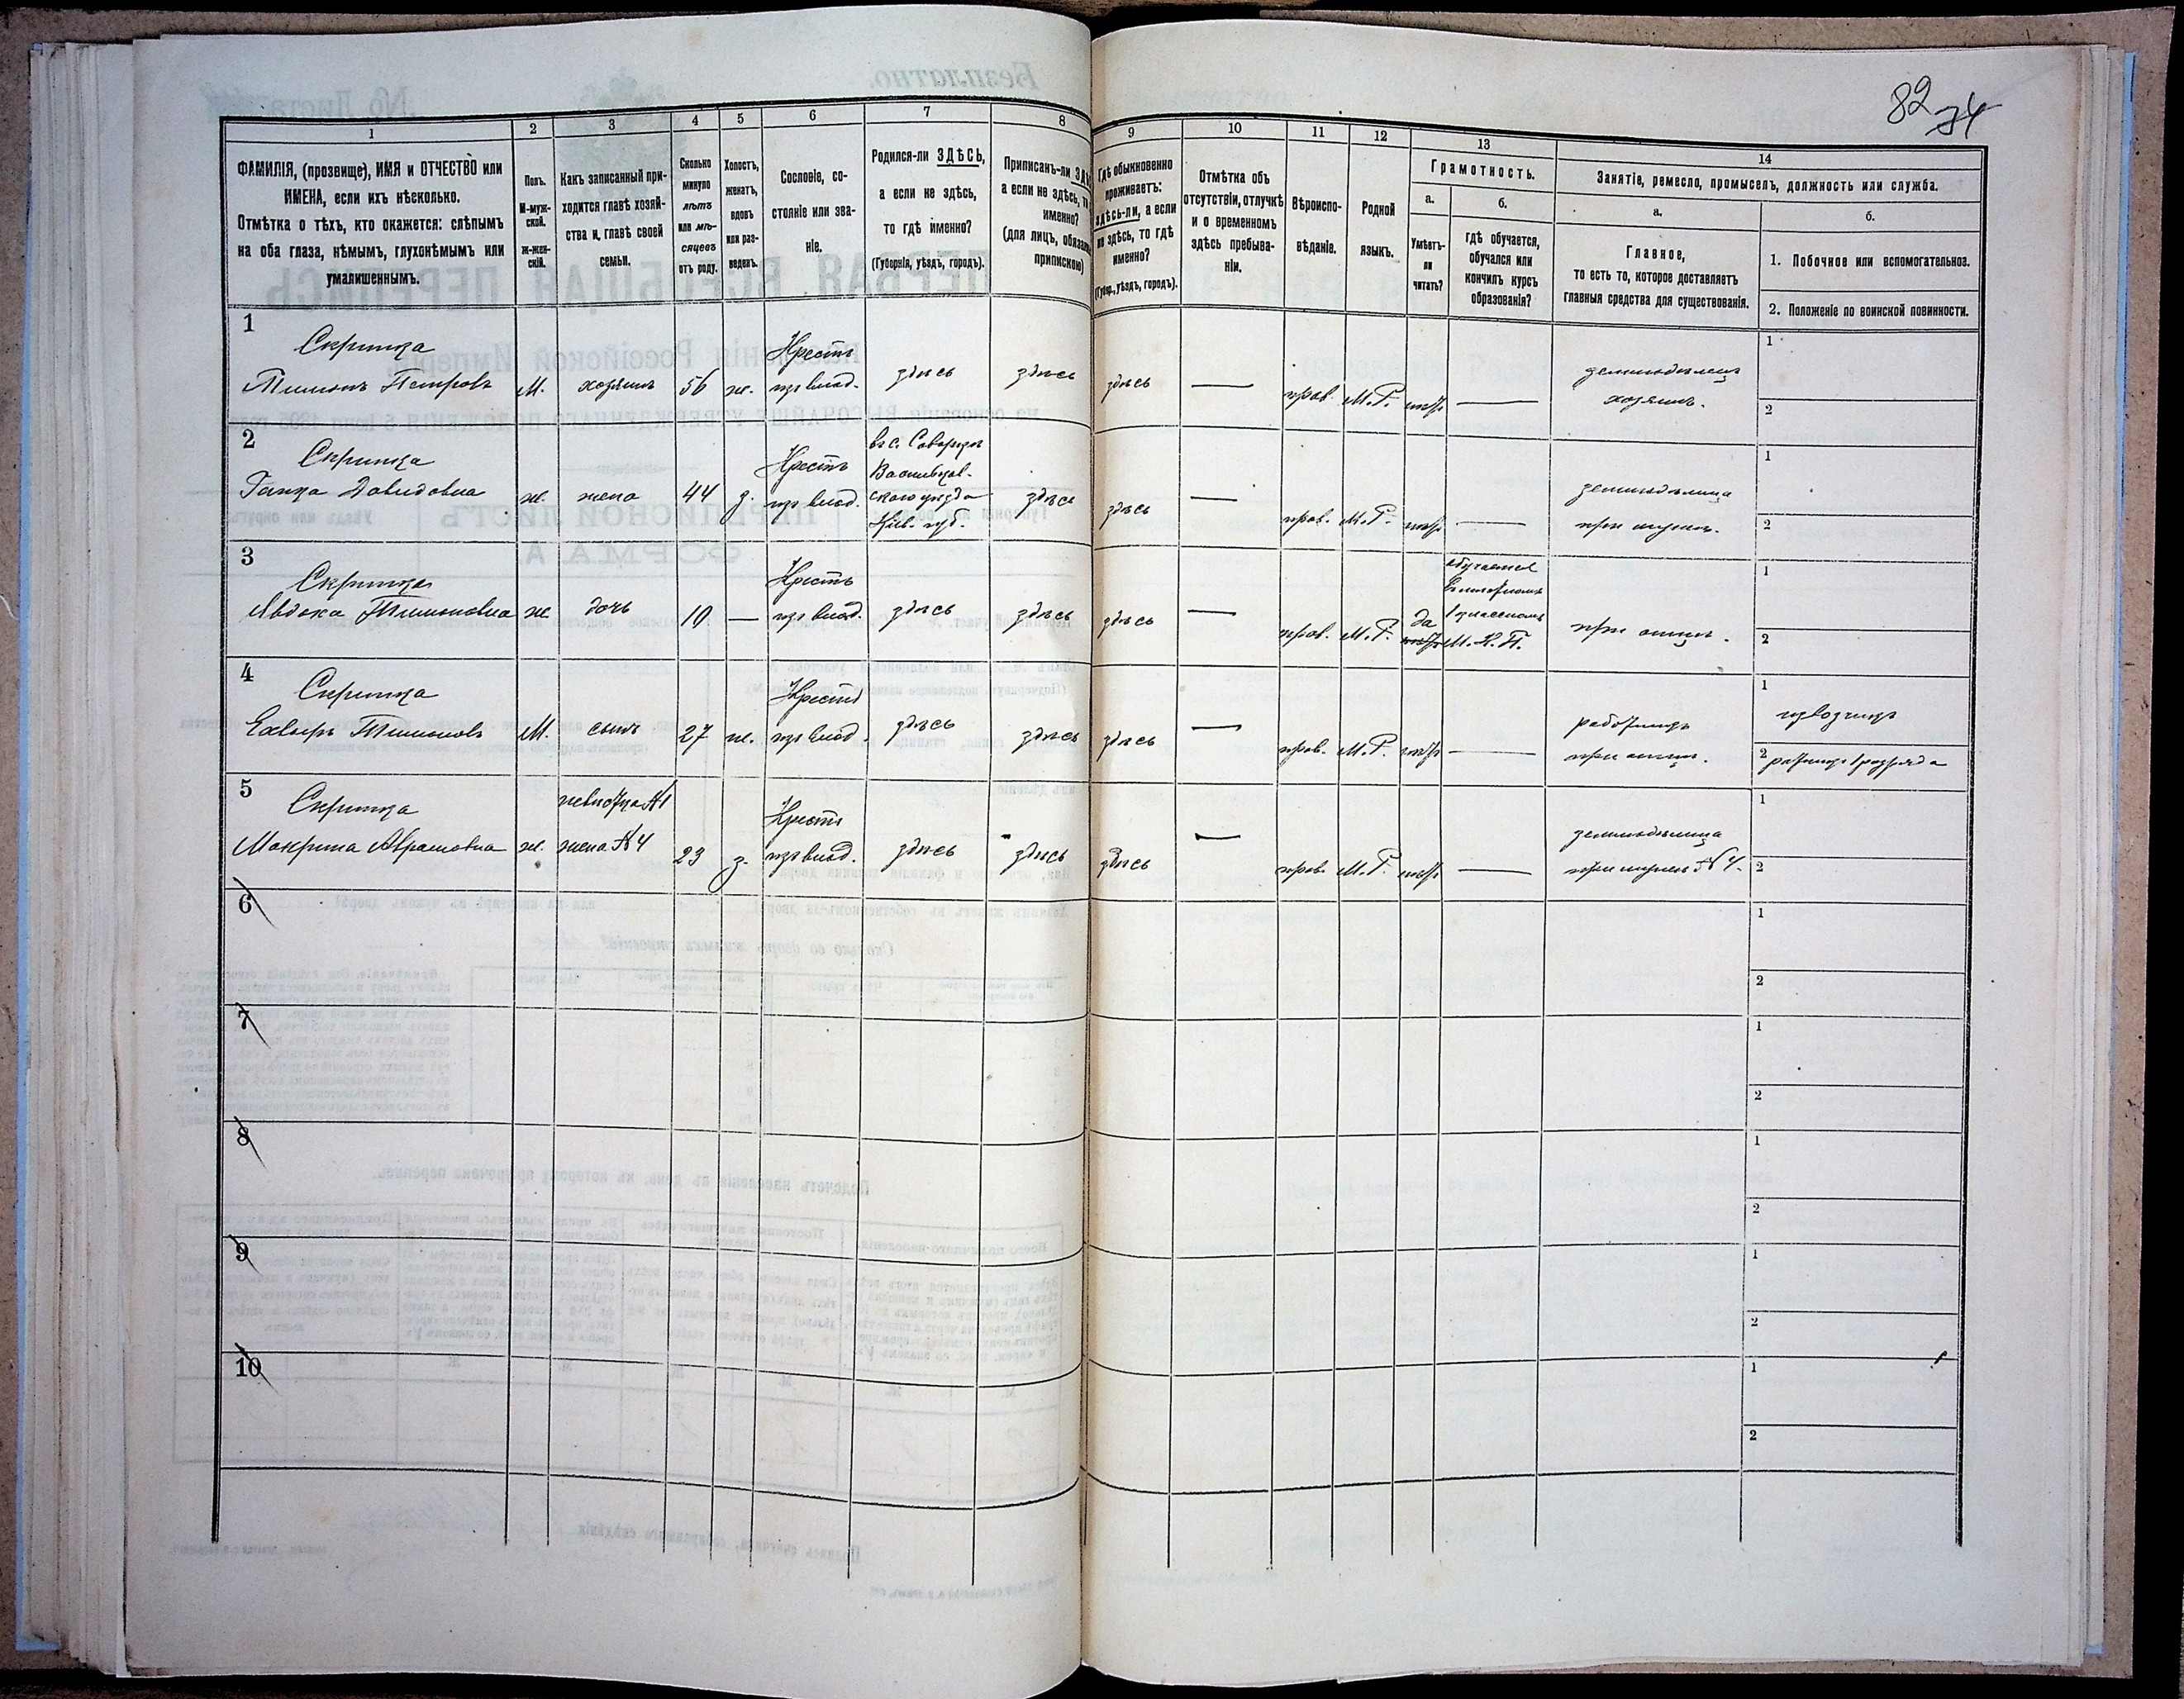 82 74
1 2 3 4 5 6 7 8 9 10 11 12 13 14
ФАМИЛІЯ, (прозвище), ИМЯ и ОТЧЕСТВО или
ИМЕНА, если ихъ нѣсколько.
Отмѣтка о тѣхъ, кто окажется: слѣпымъ
на оба глаза, нѣмымъ, глухонѣмымъ или
умалишеннымъ.
Полъ.
М-муж-
ской.
Ж-жен-
скій.
Какъ записанный при-
ходится главѣ хозяй-
ства и главѣ своей
семьи.
Сколько
минуло
лѣтъ
или мѣ-
сяцевъ
отъ роду.
Холостъ,
женатъ,
вдовъ
или раз-
веденъ.
Сословіе, со-
стояніе или зва-
ніе.
Родился-ли ЗДѢСЬ,
а если не здѣсь,
то гдѣ именно?
(Губернія, уѣздъ, городъ).
Приписанъ-ли
а если не здѣсь,
именно?
(для лицъ,
припискою)
Гдѣ обыкновенно
проживаетъ:
здѣсь-ли, а если
не здѣсь, то гдѣ
именно?
(Губер., уѣздъ, городъ).
Отмѣтка объ
отсутствіи, отлучкѣ
и о временномъ
здѣсь пребыва-
ніи.
Вѣроиспо-
вѣданіе.
Родной
языкъ.
Грамотность.
а.
Умѣетъ-
ли
читать?
б.
гдѣ обучается,
обучался или
кончилъ курсъ
образованія?
Занятіе, ремесло, промыселъ, должность или служба.
а.
Главное,
то есть то, которое доставляетъ
главныя средства для существованія.
б.
1. Побочное или вспомогательное.
2. Положеніе по воинской повинности.
1
Скрипка
Тимонъ Петровъ
М. хозяинъ 56 ж.
Крестъ
изъ влад.
здѣсь здѣсь здѣсь — прав. М.Р. нѣтъ —
земледѣлецъ
хозяинъ.
1
2
2
Скрипка
Ганка Давидовна
ж. жена 44 з.
Крестъ
изъ влад.
въ с.
Васильков-
скаго уѣзда
Кіев. губ.
здѣсь здѣсь — прав. М.Р. нѣтъ —
земледѣлица
при мужѣ.
1
2
3
Скрипка
Явдоха Тимоновна
ж. дочь 10 —
Крестъ
изъ влад.
здѣсь здѣсь здѣсь — прав. М.Р.
да
нѣтъ
обучается
1 классномъ
М.Н.П.
при отцѣ.
1
2
4
Скрипка
Тимоновъ
М. сынъ 27 ж.
Крестъ
изъ влад.
здѣсь здѣсь здѣсь — прав. М.Р. нѣтъ —
работникъ
при отцѣ.
1
извозчикъ
2 ратникъ 1 разряда
5
Скрипка
Макрина Аврамовна
ж.
невѣстка №1
жена №4
23 з.
Крестъ
изъ влад.
здѣсь здѣсь здѣсь — прав. М.Р. нѣтъ —
земледѣлица
при мужѣ №4.
1
2
6
1
2
7
1
2
8
1
2
9
1
2
10
1
2